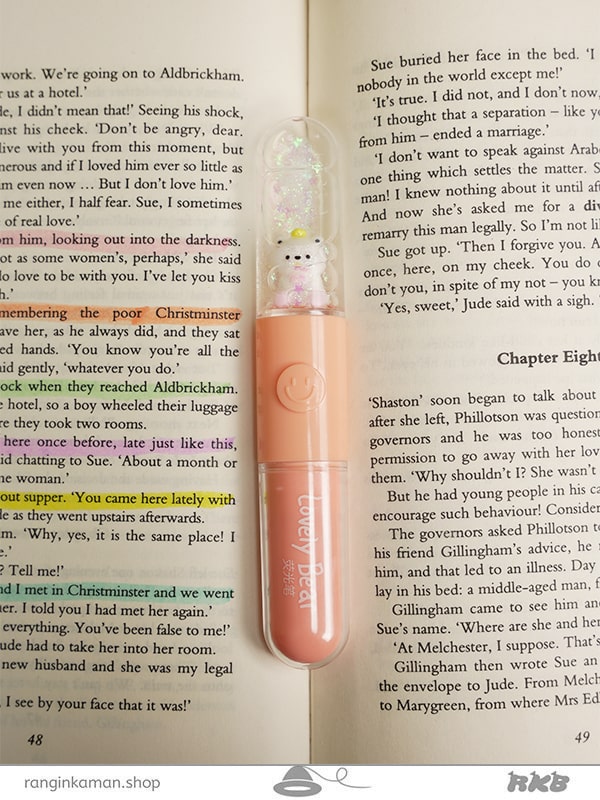 work. We're going on to Aldbrickham.
us at a hotel.'
I didn't mean that!' Seeing his shock,
his cheek. 'Don't be angry, dear.
live with you from this moment, but
and if I loved him ever so little as
even now ... But I don't love him.'
me either, I half fear. Sue, I sometimes
of real love.'
him, looking out into the darkness.
as some women's, perhaps,' she said
love to be with you. I've let you kiss
the poor Christminster
her, as he always did, and they sat
hands. 'You know you're all the
gently, 'whatever you do.'
when they reached Aldbrickham.
hotel, so a boy wheeled their luggage
they took two rooms.
here once before, late just like this,
chatting to Sue. 'About a month or
woman.'
supper. 'You came here lately with
as they went upstairs afterwards.
'Why, yes, it is the same place! I
? Tell me!'
I met in Christminster and we went
I told you I had met her again.'
everything. You've been false to me!'
had to take her into her room.
new husband and she was my legal
I see by your face that it was!'
48
Lovely Bear
荧光笔
Sue buried her face in the bed. 'I
nobody in the world except me!'
'It's true. I did not, and I don't now,
'I thought that a separation – like
from him – ended a marriage.'
'I don't want to speak against
one thing which settles the matter.
man! I knew nothing about it until
And now she's asked me for a
remarry this man legally. So I'm not
Sue got up. 'Then I forgive you.
once, here, on my cheek. You do
don't you, in spite of my not – you
'Yes, sweet,' Jude said with a sigh.
Chapter Eight
'Shaston' soon began to talk about
after she left, Phillotson was
governors and he was too
permission to go away with her
them. 'Why shouldn't I? She wasn't
But he had young people in his
encourage such behaviour!
The governors asked Phillotson
his friend Gillingham's advice, he
him, and that led to an illness. Day
lay in his bed: a middle-aged man,
Gillingham came to see him
Sue's name. 'Where are she and
'At Melchester, I suppose. That's
Gillingham then wrote Sue an
the envelope to Jude. From
to Marygreen, from where Mrs
49
ranginkaman.shop
RKB